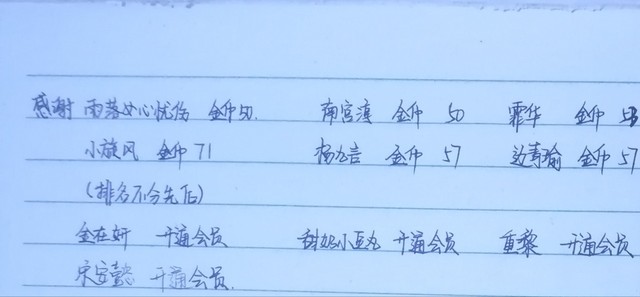 感谢 雨落女心忧伤 金仲50. 南宫滇 金仲 50 霏华 金仲
小旋风 金仲71 杨九言 金仲 57 边青瑜 金仲 57
(排名不分先后)
金在妍 开通会员 甜妞小豆丸 开通会员 重黎 开通会员
宋安懿 开通会员.